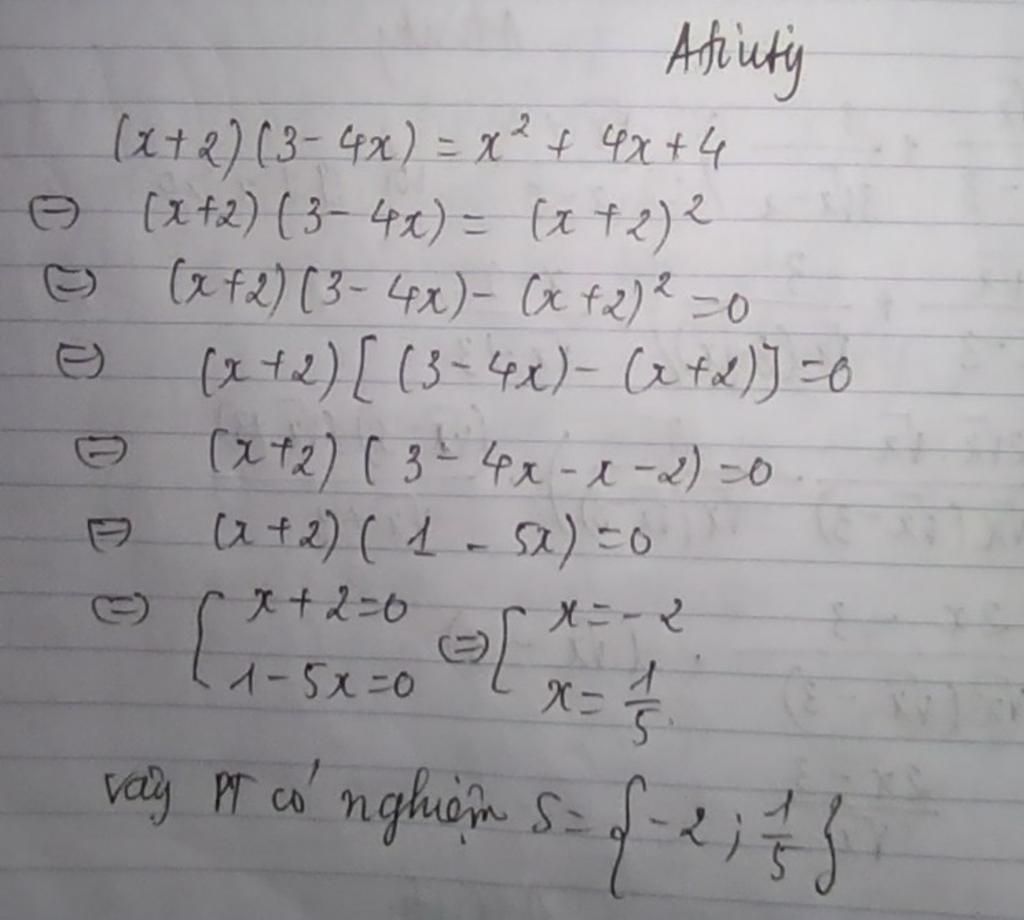 (x+2)(3-4x) = x² + 4x+4
⇔ (x+2)(3-4x) = (x+2)²
⇔ (x+2)(3-4x) - (x+2)² = 0
⇔ (x+2)[(3-4x) - (x+2)] = 0
⇔ (x+2)(3-4x-x-2) = 0
⇔ (x+2)(1-5x) = 0
⇔ [ x+2=0 ⇔ [ x=-2
1-5x=0 x=1/5.
vậy PT có nghiệm S = {-2; 1/5}